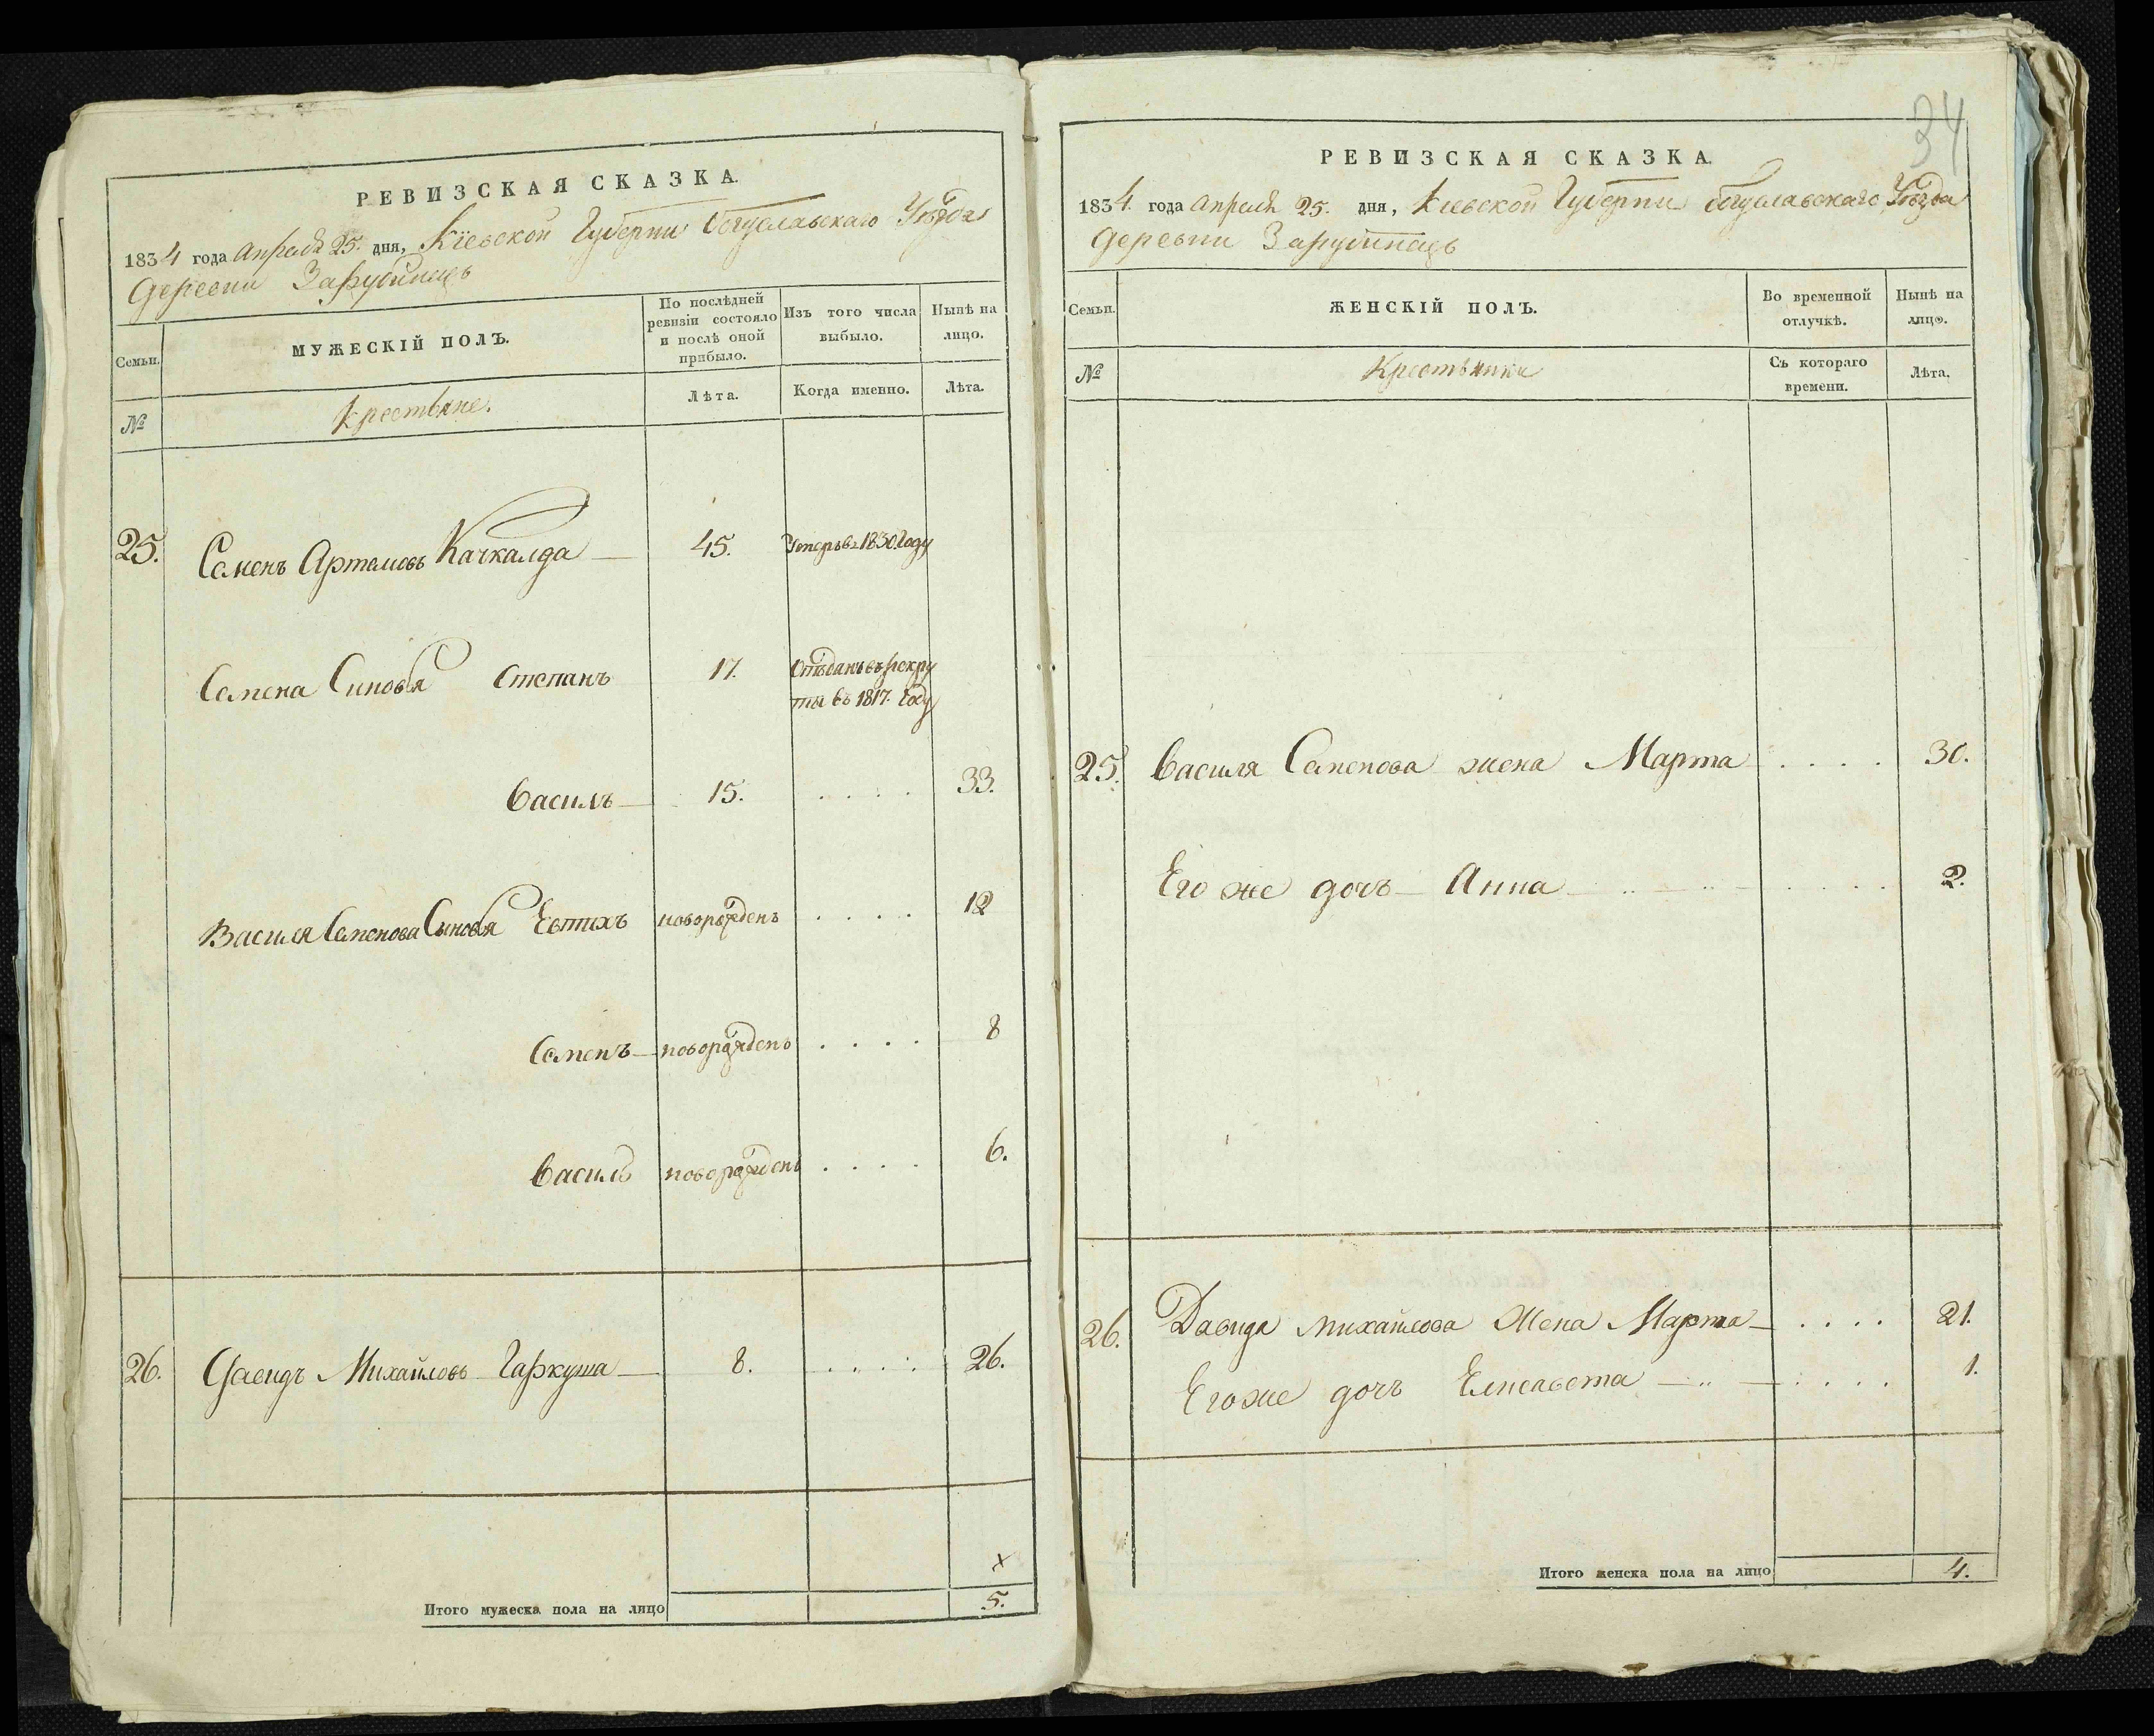 РЕВИЗСКАЯ СКАЗКА.
1834 года апреля 25. дня, Кіевской Губерніи Богуславскаго Уѣзда
деревни Зарубинецъ
Семьи.
МУЖЕСКІЙ ПОЛЪ.
По послѣдней
ревизіи состояло
и послѣ оной
прибыло.
Изъ того числа
выбыло.
Нынѣ на
лицо.
№
Крестьяне.
Лѣта.
Когда именно.
Лѣта.
25. Семенъ Артемовъ Качкалда 45. Умеръ въ 1830. Году
Семена Синовья Степанъ 17. Отъданъ въ рекру
ты въ 1817. Году
Василь 15. . . . . 33.
Василя Семенова Сыновья Евтихъ новорожденъ . . . . 12
Семенъ новорожденъ . . . . 8
Василь новорожденъ . . . . 6.
26. Давидъ Михайловъ Гаркуша 8. . . . . 26.
Итого мужеска пола на лицо 5.
34
РЕВИЗСКАЯ СКАЗКА.
1834. года апреля 25. дня, Кіевской Губерніи Богуславскаго Уѣзда
деревни Зарубинецъ
Семьи.
ЖЕНСКІЙ ПОЛЪ.
Во временной
отлучкѣ.
Нынѣ на
лицо.
№
Крестьянки
Съ котораго
времени.
Лѣта.
25. Василя Семенова жена Марта . . . . 30.
Его же дочь Анна . . . . 2.
26. Давида Михайлова Жена Марта . . . . 21.
Его же дочь Елисавета . . . . 1.
Итого женска пола на лицо 4.